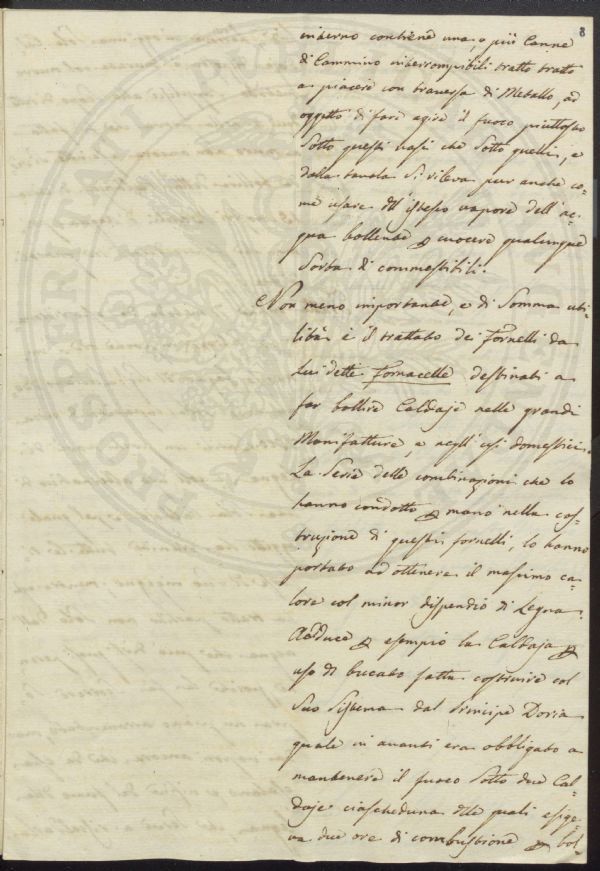 8
interno contiene una, o più Canne
di Cammino interrompibili tratto tratto
a piacere con traversa di Metallo, ad
oggetto di fare agire il fuoco piuttosto
sotto questi vasi che sotto quelli, e
dalla tavola si rileva pur anche co=
me usare dell'istesso vapore dell'ac=
qua bollente p cuocere qualunque
sorta di commestibili.
Non meno importante, e di somma uti=
lità è il trattato dei fornelli da
Lui detti Fornacette destinati a
far bollire Caldaje nelle grandi
Manifatture, e negli usi domestici.
La serie delle combinazioni che lo
hanno condotto p mano nella cos=
truzione di questi fornelli, lo hanno
portato ad ottenere il massimo ca=
lore col minor dispendio di Legna.
Adduce p esempio la Caldaja p
uso di bucato fatta costruire col
suo sistema dal Principe Doria
quale in avanti era obbligato a
mantenere il fuoco sotto due Cal=
daje ciascheduna delle quali esige=
va due ore di combustione p bol=
PROSPERITATI